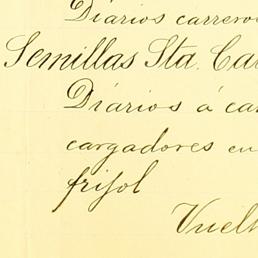 Diários carrero
Semillas Sta. Ca
Diários á ca
cargadores en
frijol
Vuel